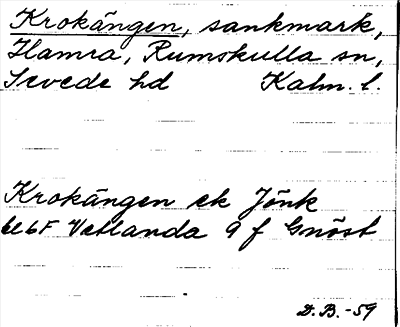 Krokängen, sankmark,
Hamra, Rumskulla sn,
Sevede hd Kalm. l.
Krokängen ek Jönk
6e6F Vetlanda 9 f Gnöst
D.B.-59